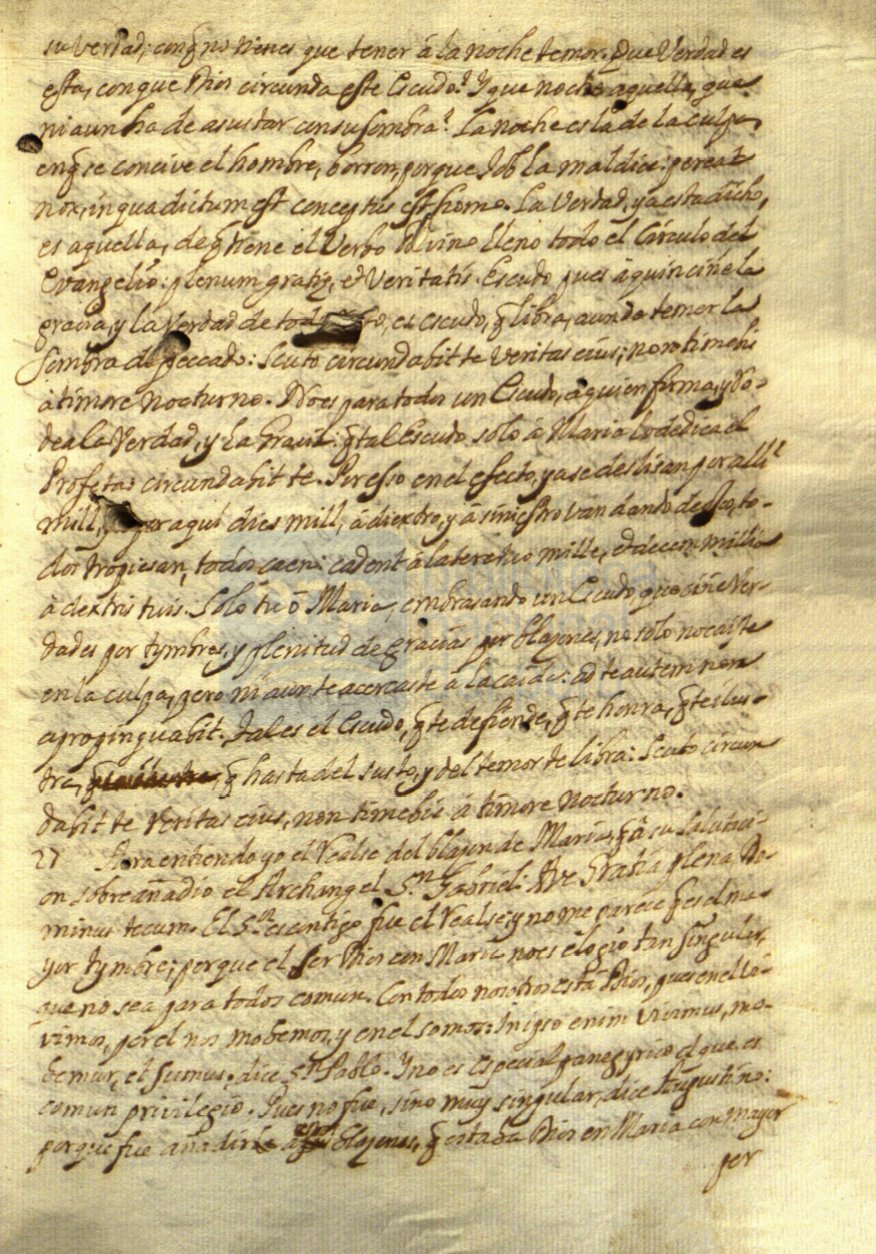 su verdad; con q̃ no tienes que tener â la noche temor. Que Verdad es
esta, con que Dios circunda este Escudo? Y que noche aquella, que
ni aun ha de asustar con su sombra? La noche es la de la culpa,
en q̃ se concive el hombre, borron, porque Job la maldice: pereat
nox, in qua dictum est conceptus est homo. La Verdad, ya esta dicho,
es aquella, de q̃ tiene el Verbo Divino lleno todo el Circulo del
Evangelio: plenum gratiæ, et Veritatis. Escudo pues à quien ciñe la
gracia, y la Verdad de es escudo, q̃ libra, aun de temer la
sombra del peccado: Scuto circundabit te veritas eius; non timebis
à timore nocturno. No es para todos un Escudo, a quien forma, y Ro-
dea la Verdad, y la Gracia: q̃ tal Escudo solo â Maria lo dedica el
Profeta: circundabit te. Por esso en el efecto, ya se deslisan por alli
mill, ya por aqui dies mill, â diextro, y â siniestro van dando to-
dos tropiesan, todos caen: cadent â latere tuo mille, et decem millia
à dextris tuis. Solo tu ô Maria, embrasando un Escudo que ciñe Ver-
dades por tymbres, y plenitud de gracias por blazones, no solo no caiste
en la culpa, pero ni aun te acercaste â la caida: ad te autem non
apropinquabit. Tal es el Escudo, q̃ te defiende, q̃ te honra, q̃ te ilus-
tra, q̃ hasta del susto, y del temor te libra: Scuto circun
dabit te Veritas eius, non timebis â timore nocturno.
27 Aora entiendo yo el Realse del blazon de Maria, q̃ â su Salutaci-
on sobreañadio el Archangel S.n Gabriel: Ave Gratia plena Do-
minus tecum. El S.r es contigo fue el Realse; y no me parece q̃ es el ma-
yor tymbre; porque el ser Dios con Maria no es elogio tan singular,
que no sea para todos comun. Con todos nosotros està Dios, pues en el vi-
vimos, por el nos mobemos, y en el somos: In ipso enim vivimus, mo-
bemur, et sumus, dice S.n Pablo. Y no es especial panegyrico el que es
comun privilegio. Pues no fue, sino muy singular, dice Augustino:
porque fue añadirle â sus blazones, q̃ estaba Dios en Maria con mayor
por